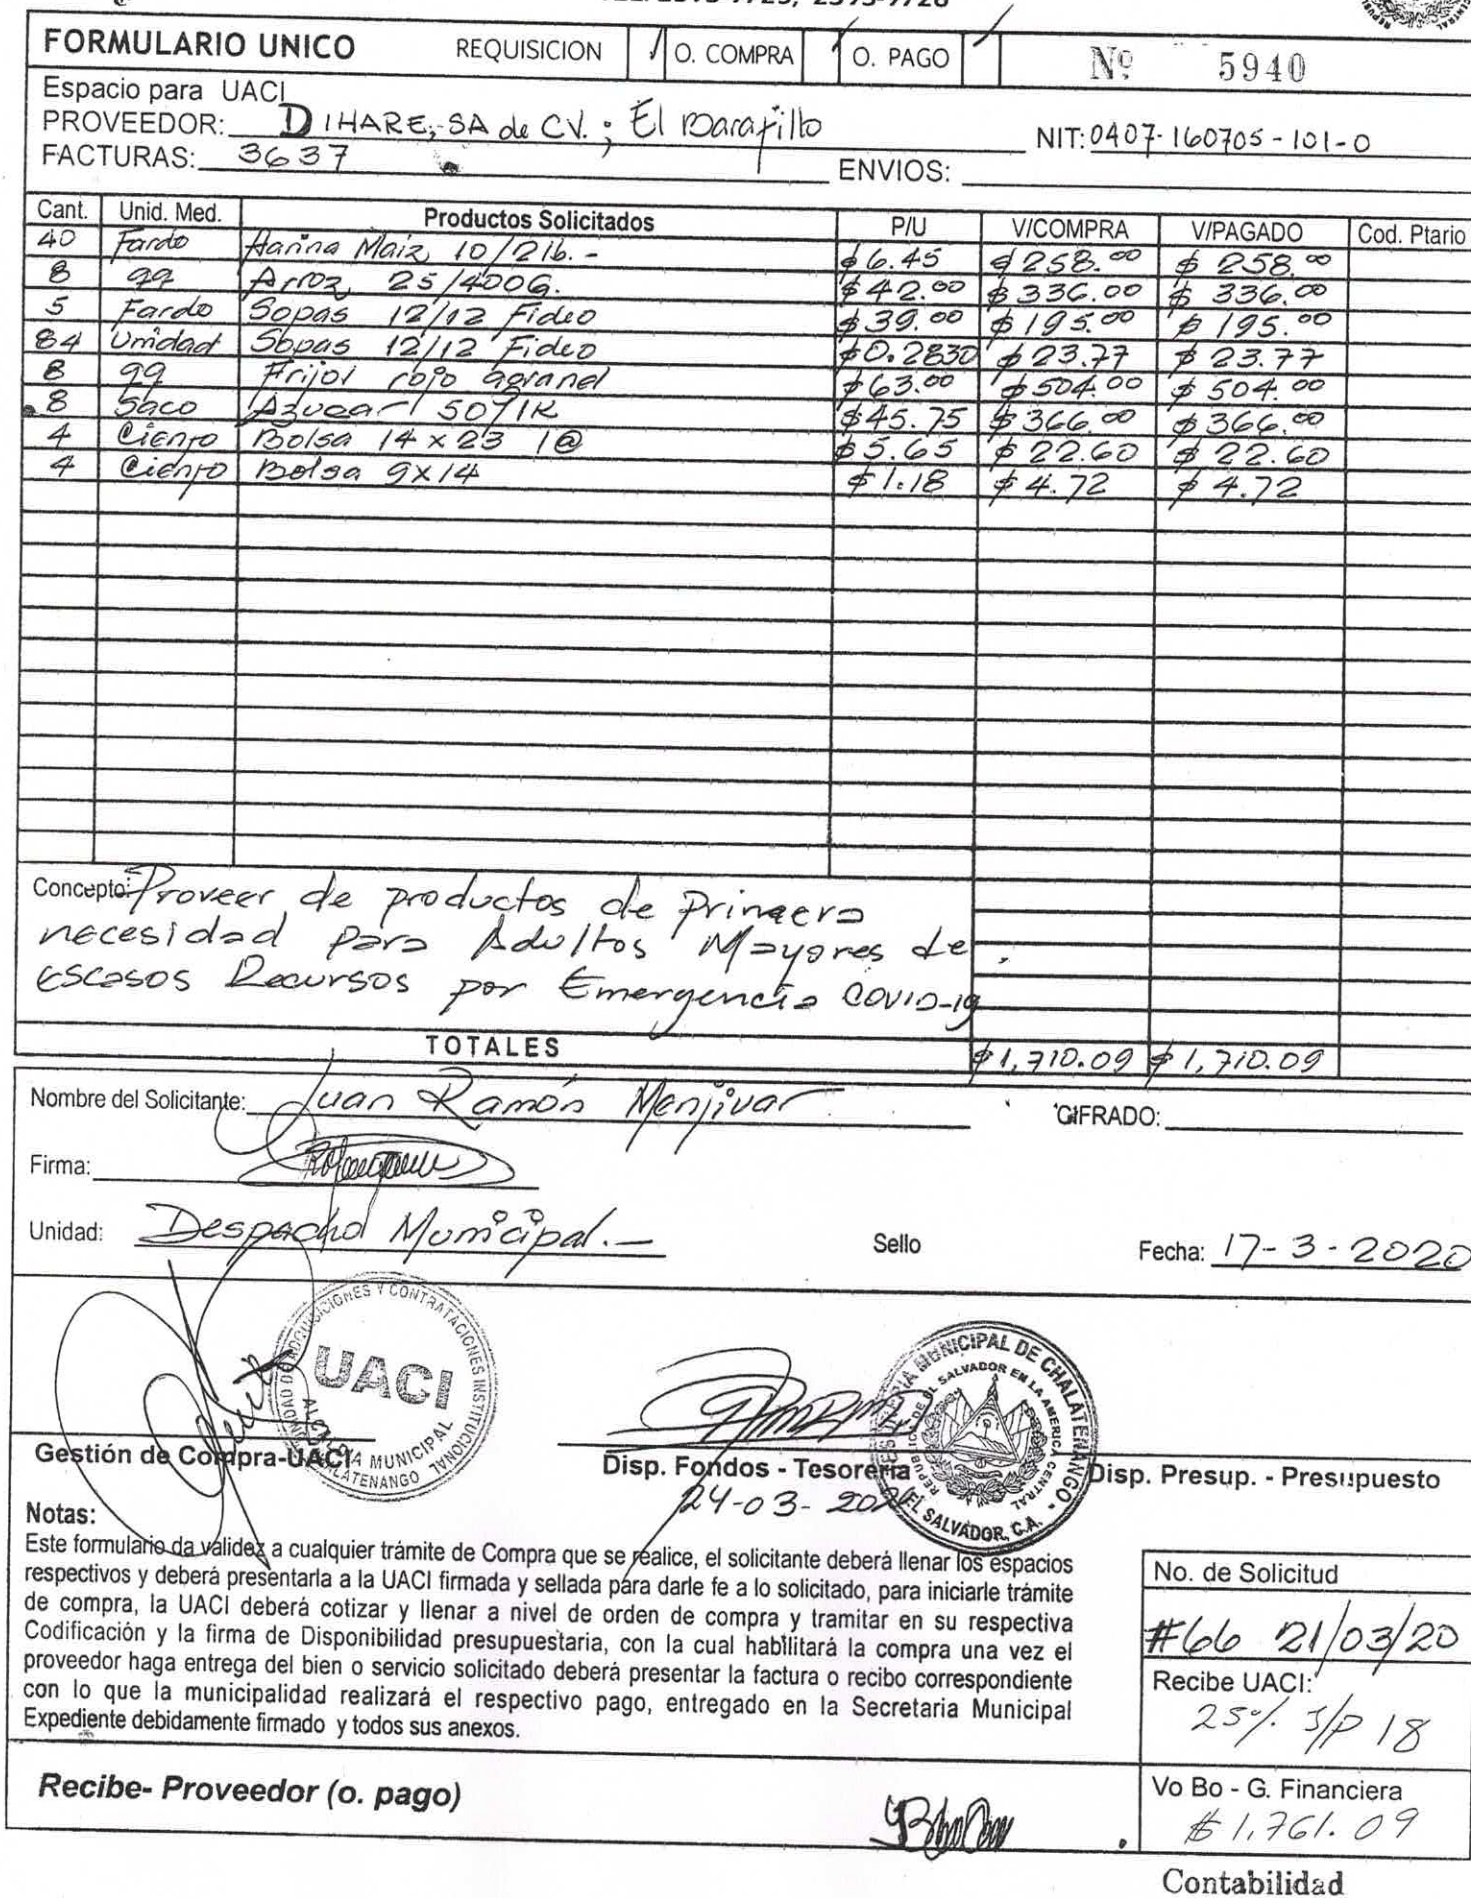 FORMULARIO UNICO REQUISICION O. COMPRA O. PAGO Nº 5940
Espacio para UACI
PROVEEDOR: DIHARE, SA de CV. ; El Barafillo NIT: 0407-160705-101-0
FACTURAS: 3637 ENVIOS:
Cant. Unid. Med. Productos Solicitados P/U V/COMPRA V/PAGADO Cod. Ptario
40 Fardo Harina Maiz 10/2lb.- $6.45 $258.00 $258.00
8 qq Arroz 25/400G. $42.00 $336.00 $336.00
5 Fardo Sopas 12/12 Fideo $39.00 $195.00 $195.00
84 Unidad Sopas 12/12 Fideo $0.2830 $23.77 $23.77
8 qq Frijol rojo agranel $63.00 $504.00 $504.00
8 Saco Azucar 50/1K $45.75 $366.00 $366.00
4 Ciento Bolsa 14x23 1@ $5.65 $22.60 $22.60
4 Ciento Bolsa 9x14 $1.18 $4.72 $4.72
Concepto: Proveer de productos de Primera
necesidad para Adultos Mayores de
Escasos Recursos por Emergencia COVID-19
TOTALES $1,710.09 $1,710.09
Nombre del Solicitante: Juan Ramón Menjivar CIFRADO:
Firma:
Unidad: Despacho Municipal.- Sello Fecha: 17-3-2020
UNIDAD DE ADQUISICIONES Y CONTRATACIONES INSTITUCIONAL
UACI
ALCALDIA MUNICIPAL
CHALATENANGO
MUNICIPAL DE CHALATENANGO
REPUBLICA DE EL SALVADOR EN LA AMERICA CENTRAL
EL SALVADOR, C.A.
Gestión de Compra-UACI Disp. Fondos - Tesorería Disp. Presup. - Presupuesto
24-03-2020
Notas:
Este formulario da válidez a cualquier trámite de Compra que se realice, el solicitante deberá llenar los espacios
respectivos y deberá presentarla a la UACI firmada y sellada para darle fe a lo solicitado, para iniciarle trámite
de compra, la UACI deberá cotizar y llenar a nivel de orden de compra y tramitar en su respectiva
Codificación y la firma de Disponibilidad presupuestaria, con la cual habilitará la compra una vez el
proveedor haga entrega del bien o servicio solicitado deberá presentar la factura o recibo correspondiente
con lo que la municipalidad realizará el respectivo pago, entregado en la Secretaria Municipal
Expediente debidamente firmado y todos sus anexos.
No. de Solicitud
#66 21/03/20
Recibe UACI:
25% S/P 18
Recibe- Proveedor (o. pago)
Vo Bo - G. Financiera
$1,761.09
Contabilidad